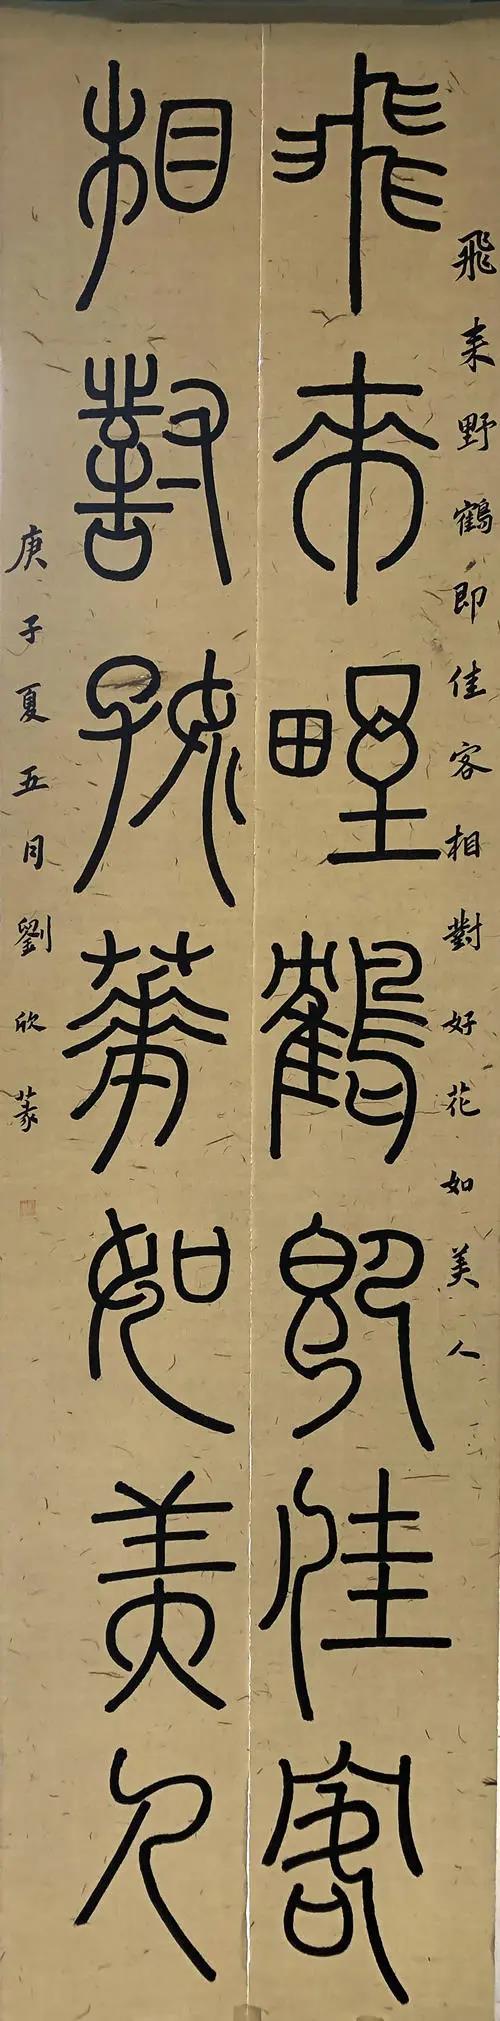 飛來野鶴即佳客相對好花如美人
飛來野鶴即佳客
相對好花如美人
庚子夏五月劉欣篆